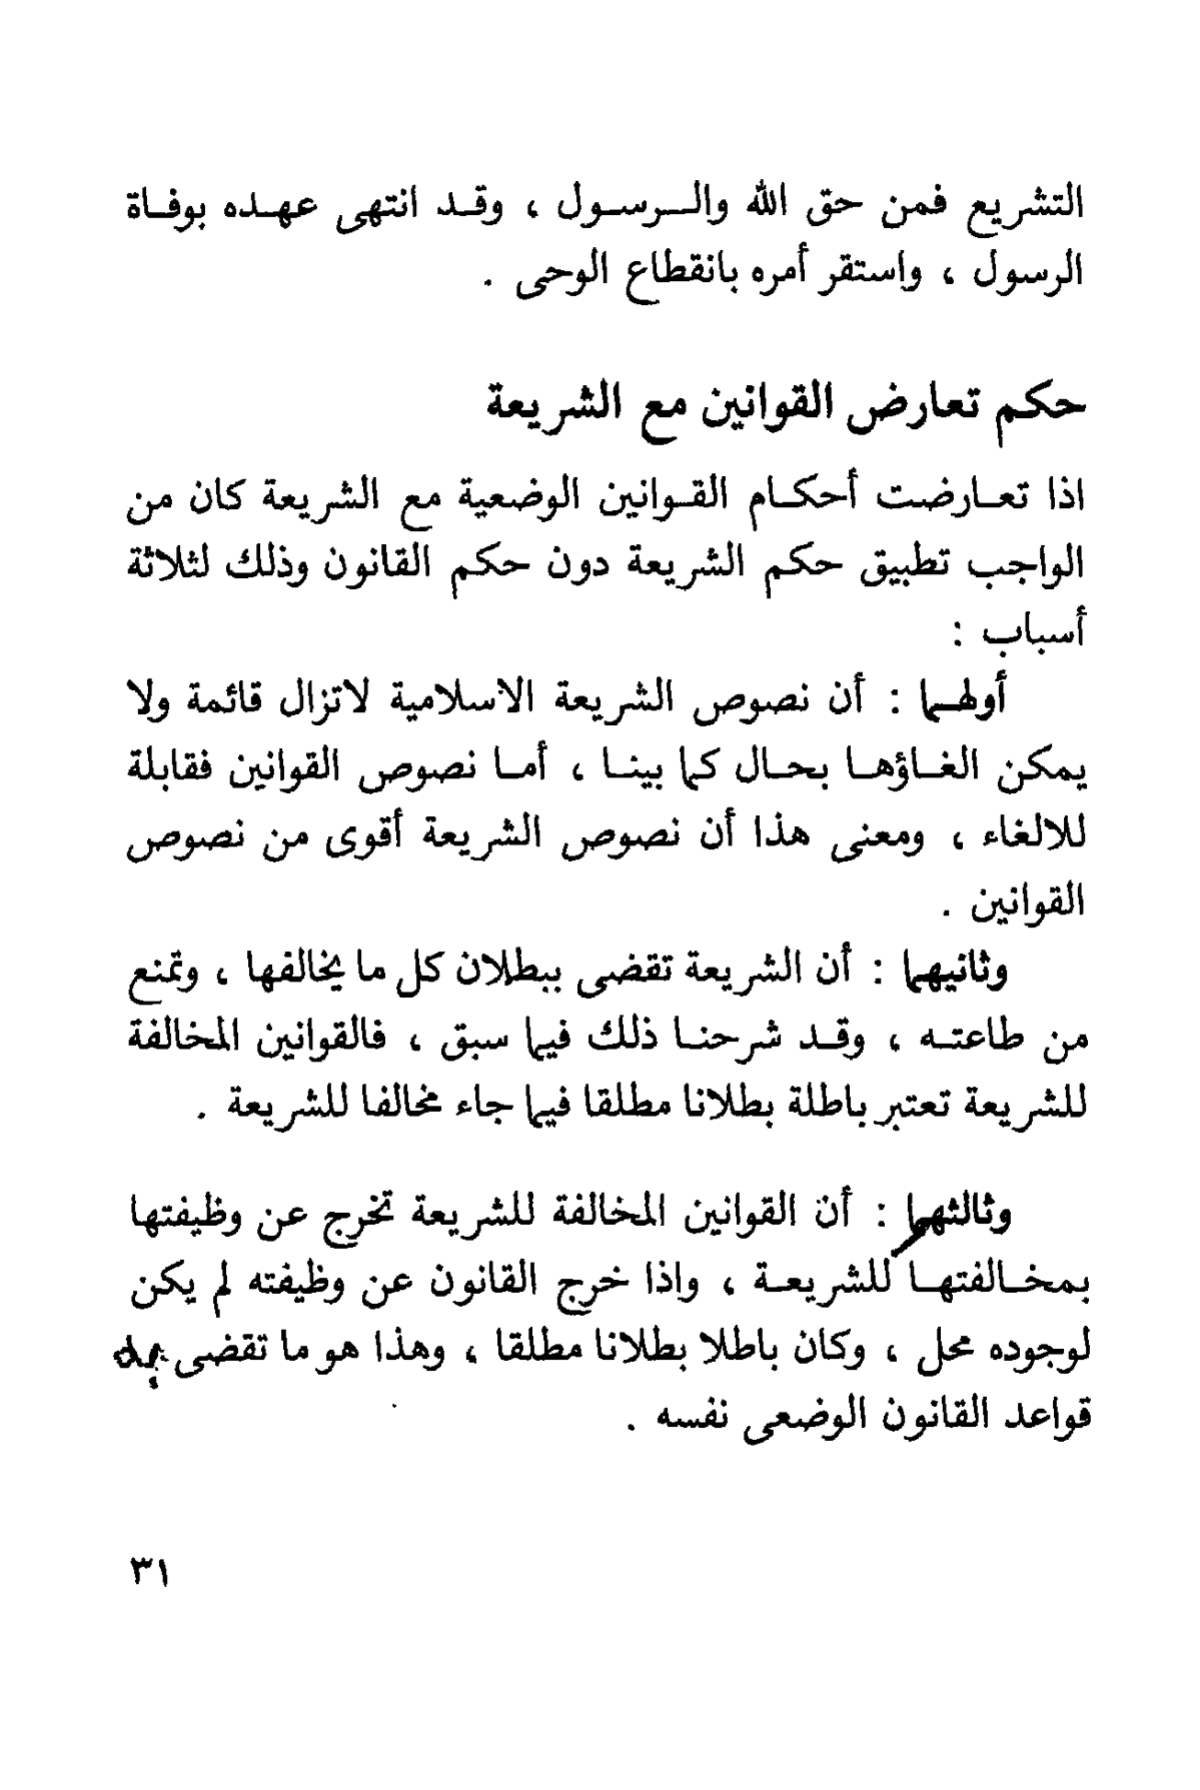 التشريع فمن حق الله والرسول ، وقد انتهى عهده بوفاة
الرسول ، واستقر أمره بانقطاع الوحى .
حكم تعارض القوانين مع الشريعة
اذا تعارضت أحكام القوانين الوضعية مع الشريعة كان من
الواجب تطبيق حكم الشريعة دون حكم القانون وذلك لثلاثة
أسباب :
أولهما : أن نصوص الشريعة الاسلامية لاتزال قائمة ولا
يمكن الغاؤها بحال كما بينا ، أما نصوص القوانين فقابلة
للالغاء ، ومعنى هذا أن نصوص الشريعة أقوى من نصوص
القوانين .
وثانيهما : أن الشريعة تقضى ببطلان كل ما يخالفها ، وتمنع
من طاعته ، وقد شرحنا ذلك فيما سبق ، فالقوانين المخالفة
للشريعة تعتبر باطلة بطلانا مطلقا فيما جاء مخالفا للشريعة .
وثالثهما : أن القوانين المخالفة للشريعة تخرج عن وظيفتها
بمخالفتها للشريعة ، واذا خرج القانون عن وظيفته لم يكن
لوجوده محل ، وكان باطلا بطلانا مطلقا ، وهذا هو ما تقضى به
قواعد القانون الوضعى نفسه .
٣١